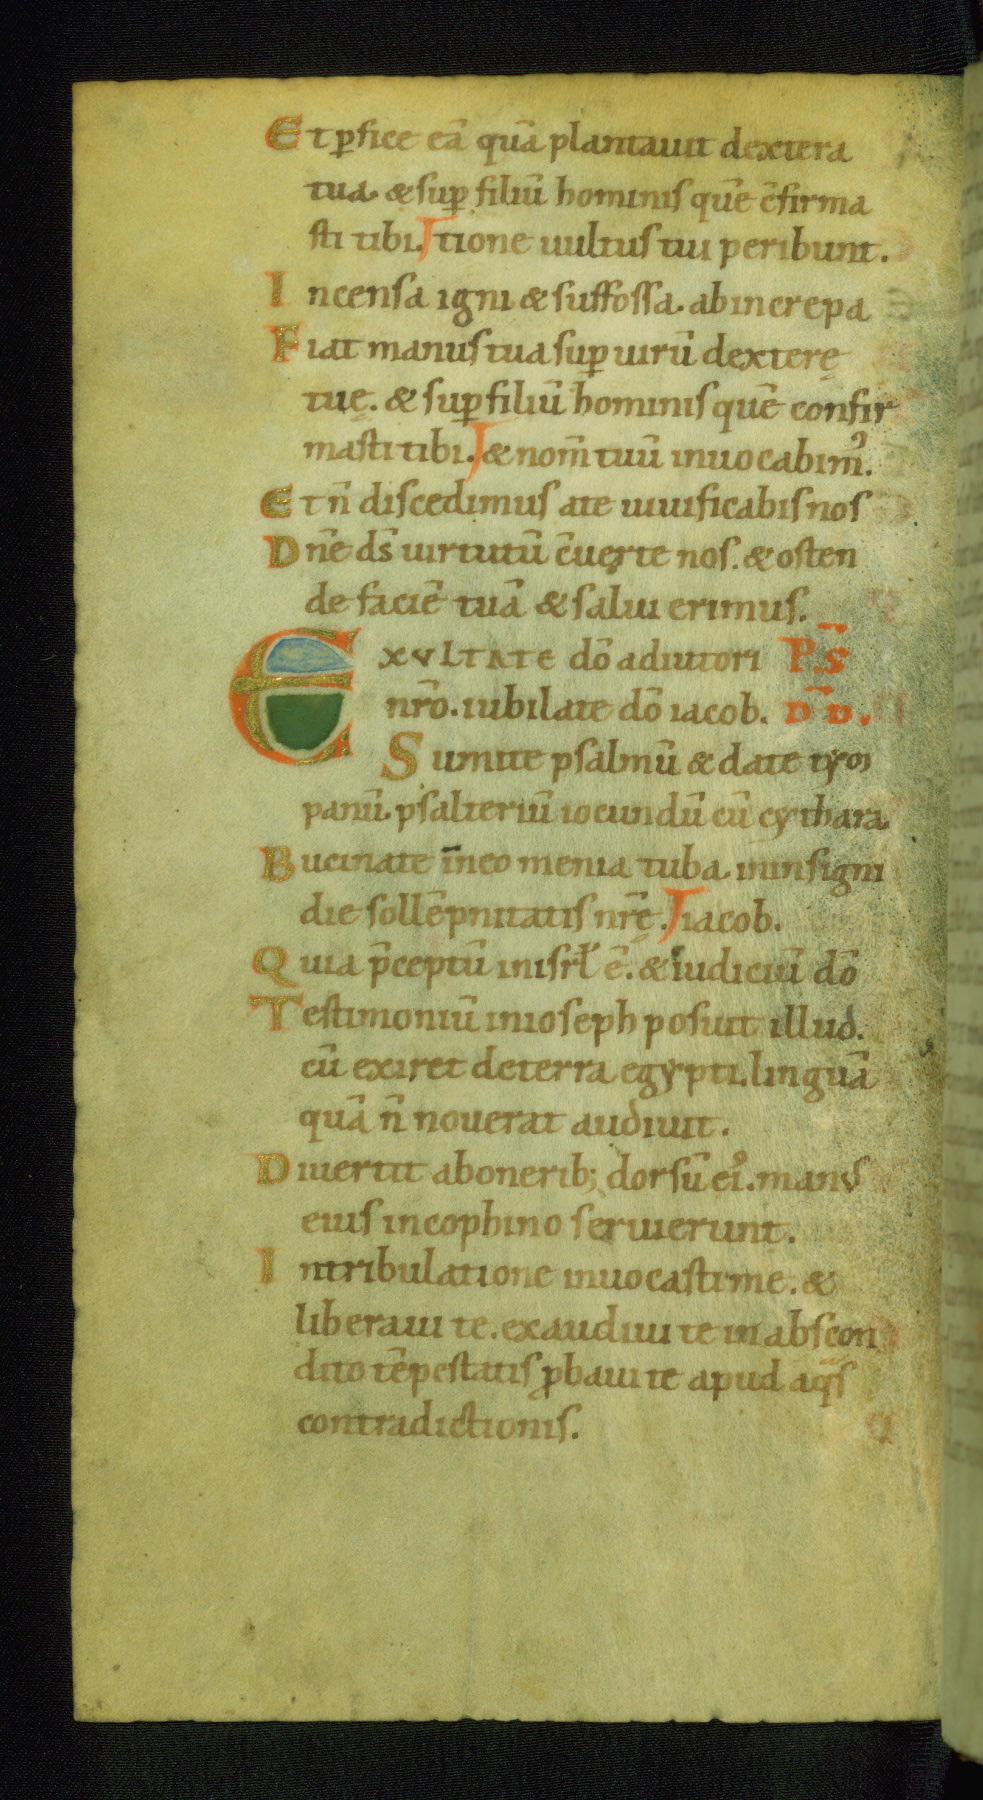 Et ꝑfice eā quā plantauit dextera
tua. & suꝑ filiū hominis quē c̄firma
sti tibi. tione uultus tui peribunt.
Incensa igni & suffossa. ab increpa
Fiat manus tua suꝑ uirū dexterę
tuę. & suꝑ filiū hominis quē confir
masti tibi. & nom̄ tuū inuocabim᾽.
Et n̄ discedimus a te uiuificabis nos
Dn̄e ds̄ uirtutū c̄uerte nos. & osten
de faciē tuā & salui erimus.
EXVLTATE dō adiutori P̄S
nr̄o. iubilate dō iacob. D̄D.
Sumite psalmū & date tym
panū. psalteriū iocundū cū cythara
Bucinate in neomenia tuba. in insigni
die sollēpnitatis nr̄ę. iacob.
Quia p̄ceptū in isrł ē. & iudiciū dō
Testimoniū in ioseph posuit illud.
cū exiret de terra egypti. linguā
quā n̄ nouerat audiuit.
Diuertit ab onerib; dorsū ei᾽. manus
eius in cophino seruierunt.
In tribulatione inuocasti me. &
liberaui te. exaudiui te in abscon
dito tēpestatis ꝓbaui te apud aq̄s
contradictionis.